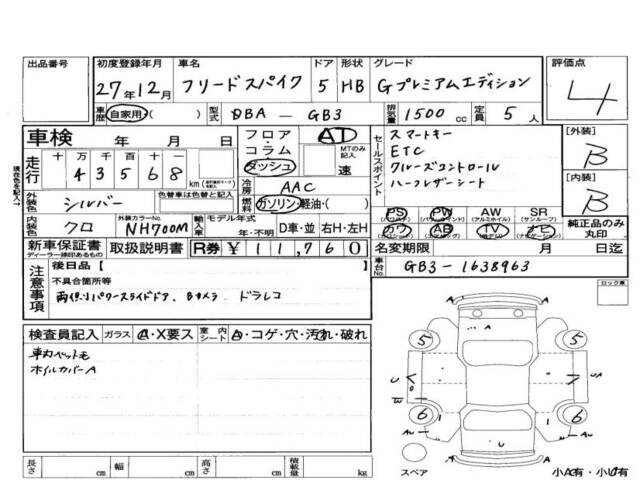 出品番号
初度登録年月 車名 ドア 形状 グレード 評価点
27年12月 フリードスパイク 5 HB Gプレミアムエディション 4
車歴 自家用( ) 型式 DBA - GB3 排気量 1500 cc 定員 5 人
車検 年 月 日 フロア・コラム AT
ダッシュ MTのみ記入 速
走行 十 万 千 百 十 一
4 3 5 6 8 km
冷房 AAC
外装色 シルバー 色替車は色替と記入 燃料 ガソリン・軽油・( )
内装色 クロ 外装カラーNo. NH700M 輸入車 モデル年式 年・不明 D車・並 右H・左H
新車保証書 取扱説明書 R券 ¥ 11,760
ディーラー様印あるもの
セールスポイント
スマートキー
ETC
クルーズコントロール
ハーフレザーシート
[外装]
B
[内装]
B
PS PW AW SR
(アルミホイル) (サンルーフ)
カワ AB TV ナビ
純正品のみ丸印
名変期限 月 日迄
車台No. GB3-1638963
注意事項
後日品【 】
不具合箇所等
両側パワースライドドア、Bカメラ、ドラレコ
ロック車
検査員記入 ガラス A・X要ス 室内シート A・コゲ・穴・汚れ・破れ
車内ペット毛
ホイルカバーA
A A
5 5
U UA
W
6 6
AU AU
A
スペア
小A有・小U有
長さ cm 幅 cm 高さ cm 積載量 kg